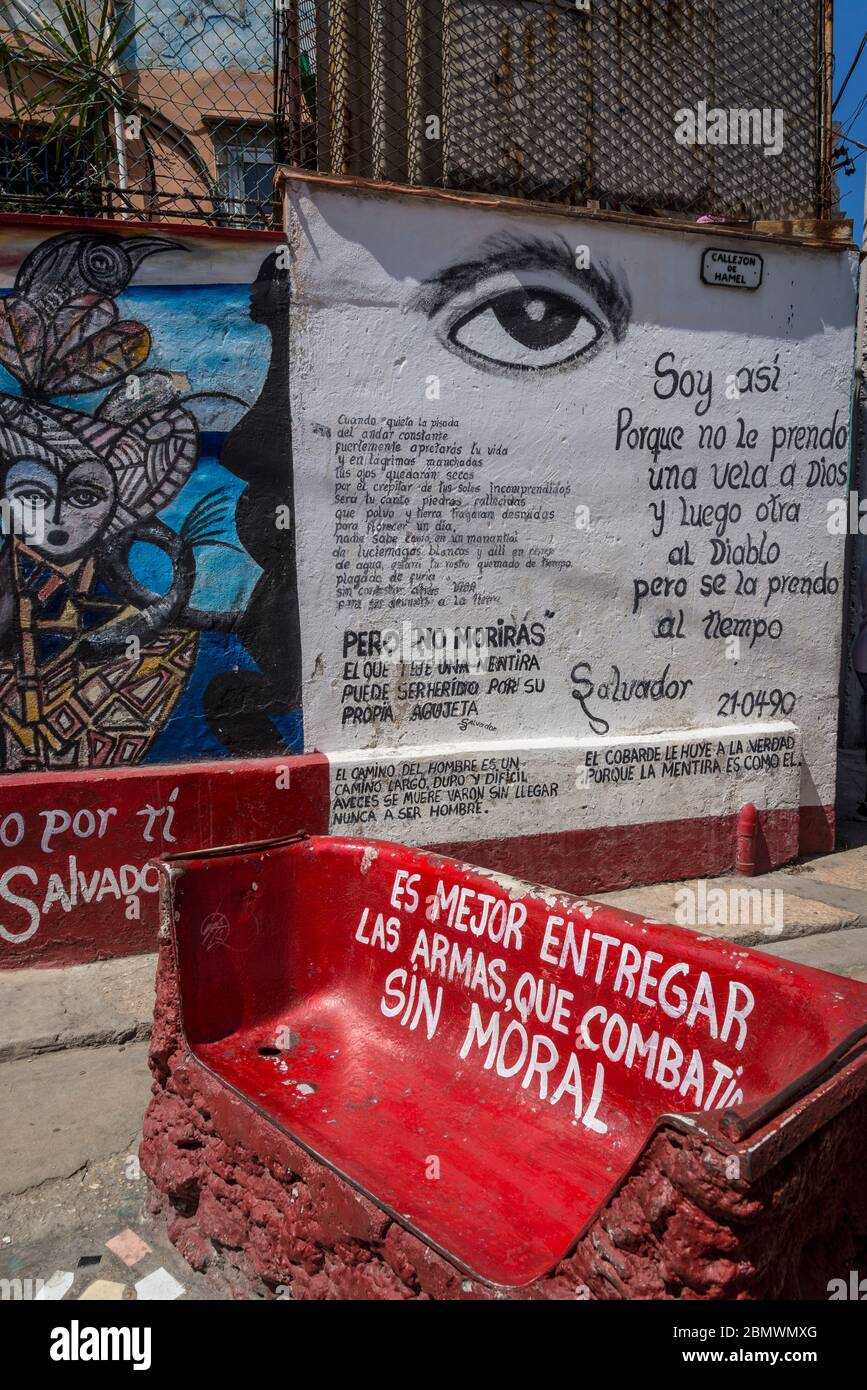 CALLEJON
DE
HAMEL
Soy así
Porque no le prendo
una vela a Dios
y luego otra
al Diablo
pero se la prendo
al tiempo
Salvador 21-04-90
Cuando quieta la pisada
del andar constante
fuertemente apretarás tu vida
y en lágrimas manchadas
tus ojos quedarán secos
por el crepitar de tus soles incomprendidos
será tu canto piedras
que polvo y tierra tragarán desnudas
para florecer un día,
nadie sabe como, en un manantial
de luciernagas blancas y allí en
de agua, estará tu rostro quemado de tiempo.
plagado de furia
sin
para ser a la tierra
PERO NO MORIRÁS"
EL QUE UNA MENTIRA
PUEDE SER HERIDO POR SU
PROPIA AGUJETA
Salvador
EL CAMINO DEL HOMBRE ES UN
CAMINO LARGO, DURO Y DIFÍCIL
AVECES SE MUERE VARON SIN LLEGAR
NUNCA A SER HOMBRE.
EL COBARDE LE HUYE A LA VERDAD
PORQUE LA MENTIRA ES COMO EL.
o por tí
SALVADO
ES MEJOR ENTREGAR
LAS ARMAS, QUE COMBATIR
SIN MORAL
alamy
Image ID: 2BMWMXG
www.alamy.com